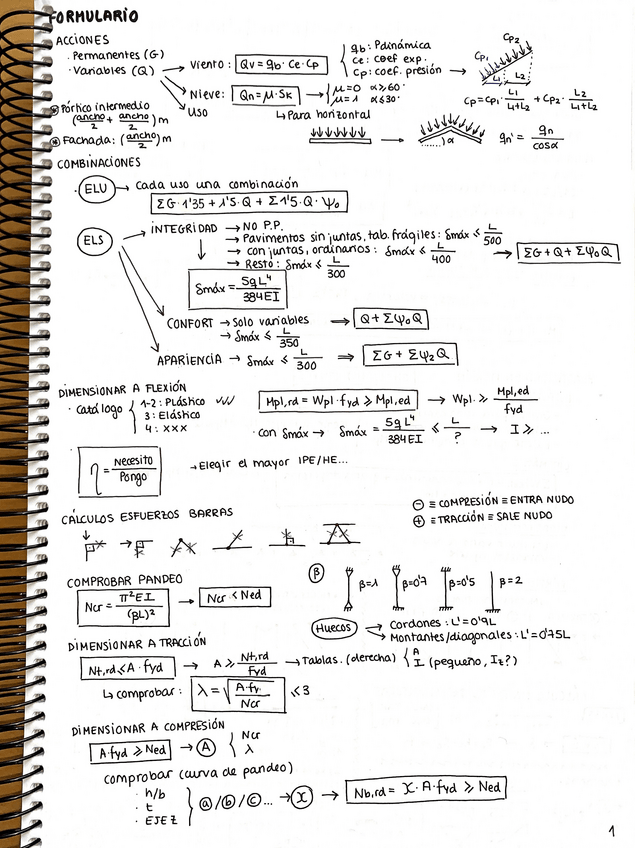 FORMULARIO
ACCIONES
· Permanentes (G)
· Variables (Q)
Viento: Qv = qb · Ce · Cp
qb: Pdinámica
Ce: coef exp.
Cp: coef. presión
Cp1
Cp2
L1 L2
Cp = Cp1 · L1/(L1+L2) + Cp2 · L2/(L1+L2)
Nieve: Qn = μ · Sk
μ=0 α≥60°
μ=1 α≤30°
Uso
↳ Para horizontal
α
qn' = qn/cosα
* Pórtico intermedio
(ancho/2 + ancho/2) m
* Fachada: (ancho/2) m
COMBINACIONES
· ELU → Cada uso una combinación
ΣG · 1'35 + 1'5 · Q + Σ1'5 · Q · ψ0
ELS → INTEGRIDAD → NO P.P.
→ Pavimentos sin juntas, tab. frágiles: δmáx ≤ L/500
→ con juntas, ordinarios: δmáx ≤ L/400 → ΣG + Q + Σψ0Q
→ Resto: δmáx ≤ L/300
δmáx = 5qL⁴/384EI
CONFORT → Solo variables ⇒ Q + Σψ0Q
→ δmáx ≤ L/350
APARIENCIA → δmáx ≤ L/300 ⇒ ΣG + Σψ2Q
DIMENSIONAR A FLEXIÓN
· Catálogo
1-2: Plástico
3: Elástico
4: xxx
Mpl,rd = Wpl · fyd ≥ Mpl,ed → Wpl ≥ Mpl,ed/fyd
· con δmáx → δmáx = 5qL⁴/384EI ≤ L/? → I ≥ ...
· η = Necesito/Pongo → Elegir el mayor IPE/HE...
⊖ ≡ COMPRESIÓN ≡ ENTRA NUDO
⊕ ≡ TRACCIÓN ≡ SALE NUDO
CÁLCULOS ESFUERZOS BARRAS
COMPROBAR PANDEO
Ncr = π²EI/(βL)² → Ncr < Ned
β β=1 β=0'7 β=0'5 β=2
Huecos → Cordones: L'=0'9L
→ Montantes/diagonales: L'=0'75L
DIMENSIONAR A TRACCIÓN
Nt,rd ≤ A · fyd → A ≥ Nt,rd/fyd → Tablas. (derecha)
A
I (pequeño, Iz?)
↳ comprobar: λ = √(A·fy/Ncr) ≤ 3
DIMENSIONAR A COMPRESIÓN
A·fyd ≥ Ned → A
Ncr
λ
comprobar (curva de pandeo)
· h/b
· t
· EJE Z
a/b/c... → χ → Nb,rd = χ · A · fyd ≥ Ned
1